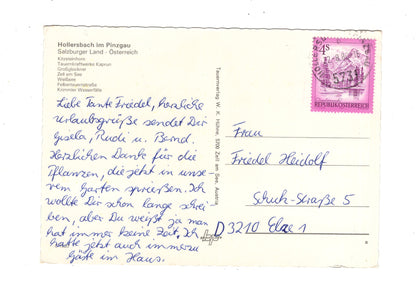 Hollersbach im Pinzgau
Salzburger Land - Österreich
Kitzsteinhorn
Tauernkraftwerke Kaprun
Großglockner
Zell am See
Weißsee
Felbertauernstraße
Krimmler Wasserfälle
Liebe Tante Friedel, herzliche
Urlaubsgrüße sendet Dir
Gisela, Rudi u. Bernd.
Herzlichen Dank für die
Pflanzen, die jetzt in unse-
rem Garten sprießen. Ich
wollte Dir schon lange schrei
ben, aber Du weißt ja man
hat immer keine Zeit. Ich
hatte jetzt auch immerzu
Gäste im Haus.
Tauernverlag W. K. Hühne, 5700 Zell am See, Austria
4S
REPUBLIK ÖSTERREICH
5731
Frau
Friedel Heidolf
Schuh-Straße 5
D 3210 Elze 1